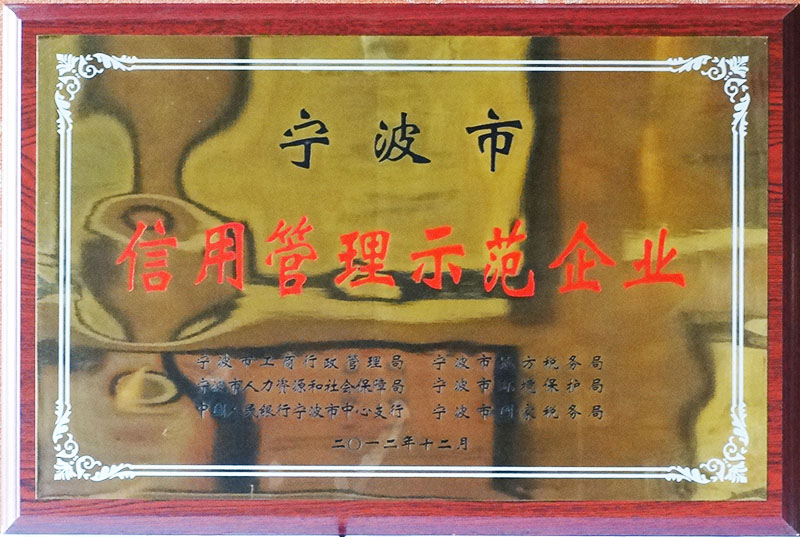 宁波市
信用管理示范企业
宁波市工商行政管理局 宁波市地方税务局
宁波市人力资源和社会保障局 宁波市环境保护局
中国人民银行宁波市中心支行 宁波市国家税务局
二〇一二年十二月